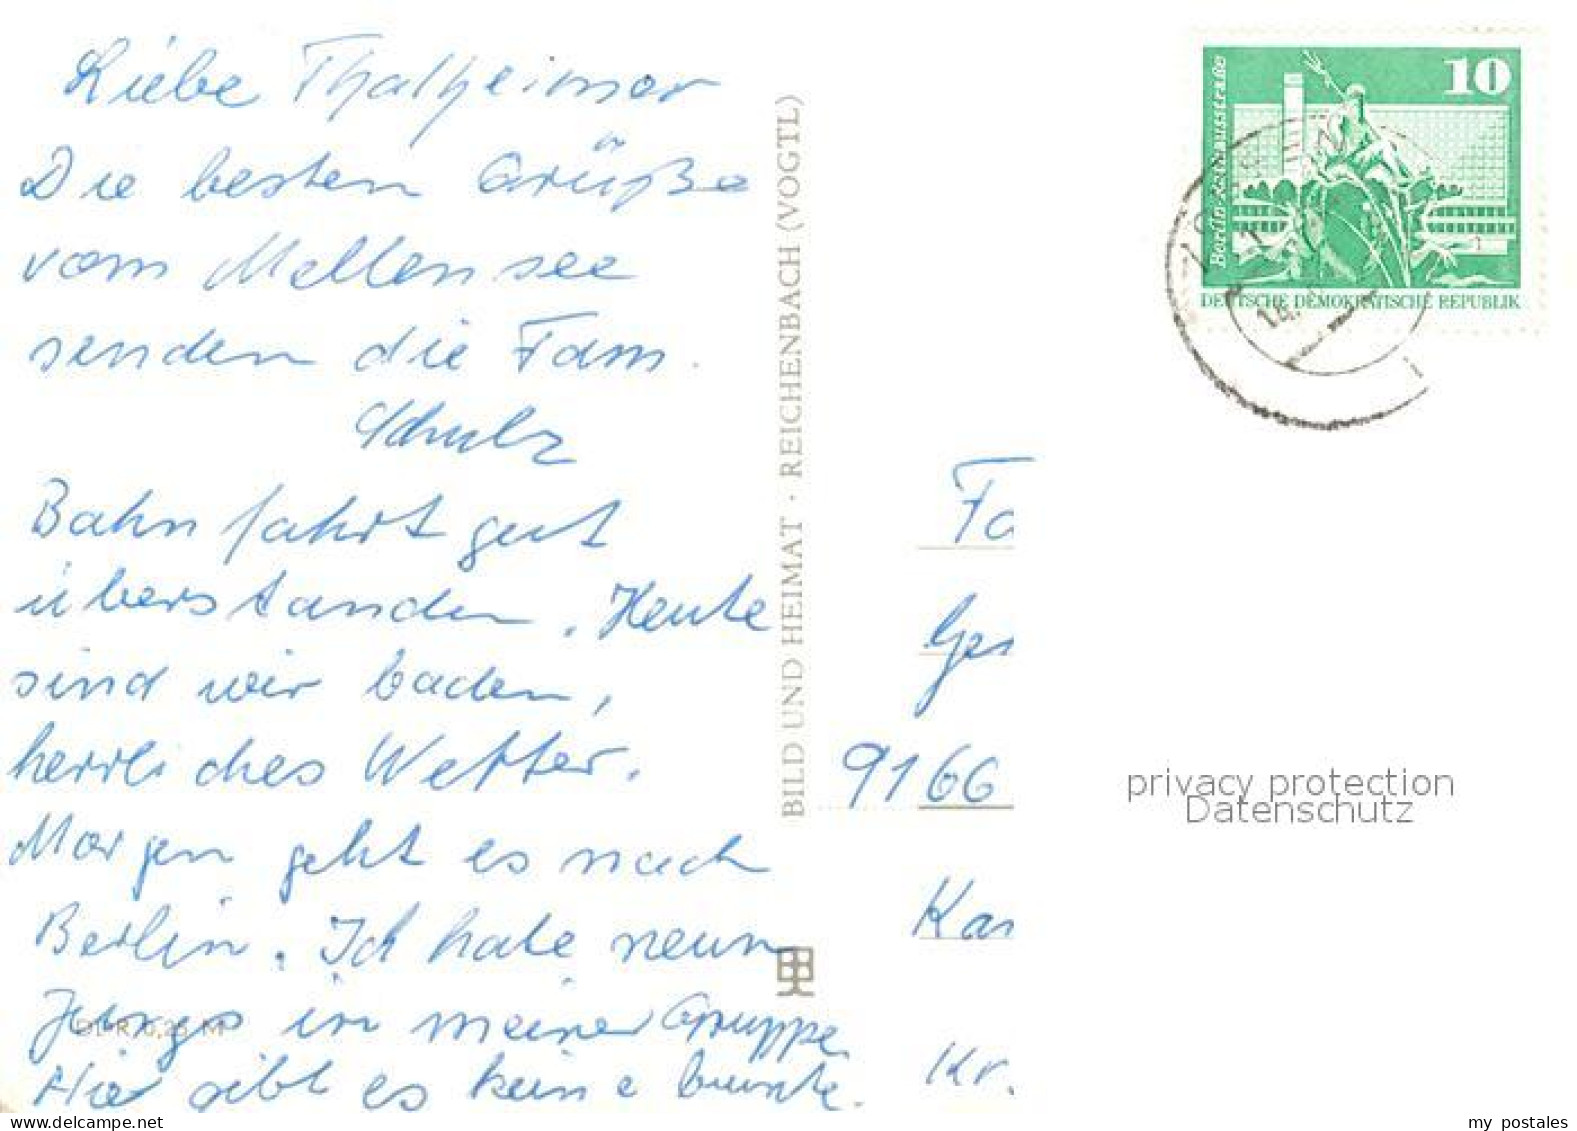 Liebe Thalheimer
Die besten Grüße
vom Mellensee
senden die Fam.
Schulz
Bahnfahrt gut
überstanden. Heute
sind wir baden,
herrliches Wetter.
Morgen geht es nach
Berlin. Ich habe neun
Jungs in meiner Gruppe
Hier gibt es keine bunte.
BILD UND HEIMAT · REICHENBACH (VOGTL)
10
Berlin-Rathausstraße
DEUTSCHE DEMOKRATISCHE REPUBLIK
9166
Kr.
privacy protection
Datenschutz
my postales